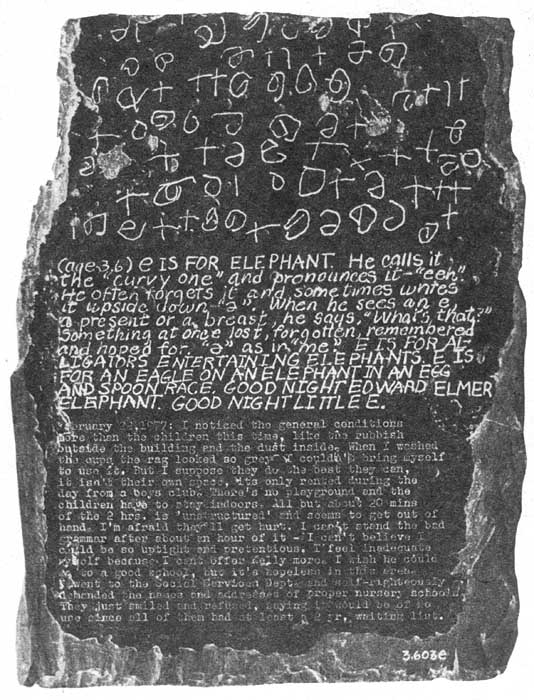 (age 3,6) e IS FOR ELEPHANT. He calls it
the "curvy one" and pronounces it "eeh."
He often forgets it and sometimes writes
it upside down, "ə". When he sees an e,
a present or a breast, he says, "What's that?"
Something at once lost, forgotten, remembered
and hoped for. "ə" as in "me". E IS FOR AL-
LIGATORS ENTERTAINING ELEPHANTS. E IS
FOR AN EAGLE ON AN ELEPHANT IN AN EGG
AND SPOON RACE. GOOD NIGHT EDWARD ELMER
ELEPHANT. GOOD NIGHT LITTLE E.
February 1977: I noticed the general conditions
more than the children this time, like the rubbish
outside the building and the dust inside. When I washed
the cups the rag looked so grey I couldn't bring myself
to use it. But I suppose they do the best they can,
it isn't their own space, its only rented during the
day from a boys club. There's no playground and the
children have to stay indoors. All but about 20 mins
of the 2 hrs. is 'unstructured' and seems to get out of
hand. I'm afraid they'll get hurt. I can't stand the bad
grammar after about an hour of it - I can't believe I
could be so uptight and pretentious. I feel inadequate
myself because I can't offer Kelly more. I wish he could
go to a good school, but it's hopeless in this area.
I went to the Social Services Dept. and self-righteously
demanded the names and addresses of proper nursery schools.
They just smiled and refused, saying it would be of no
use since all of them had at least a 2 yr, waiting list.
3.603e